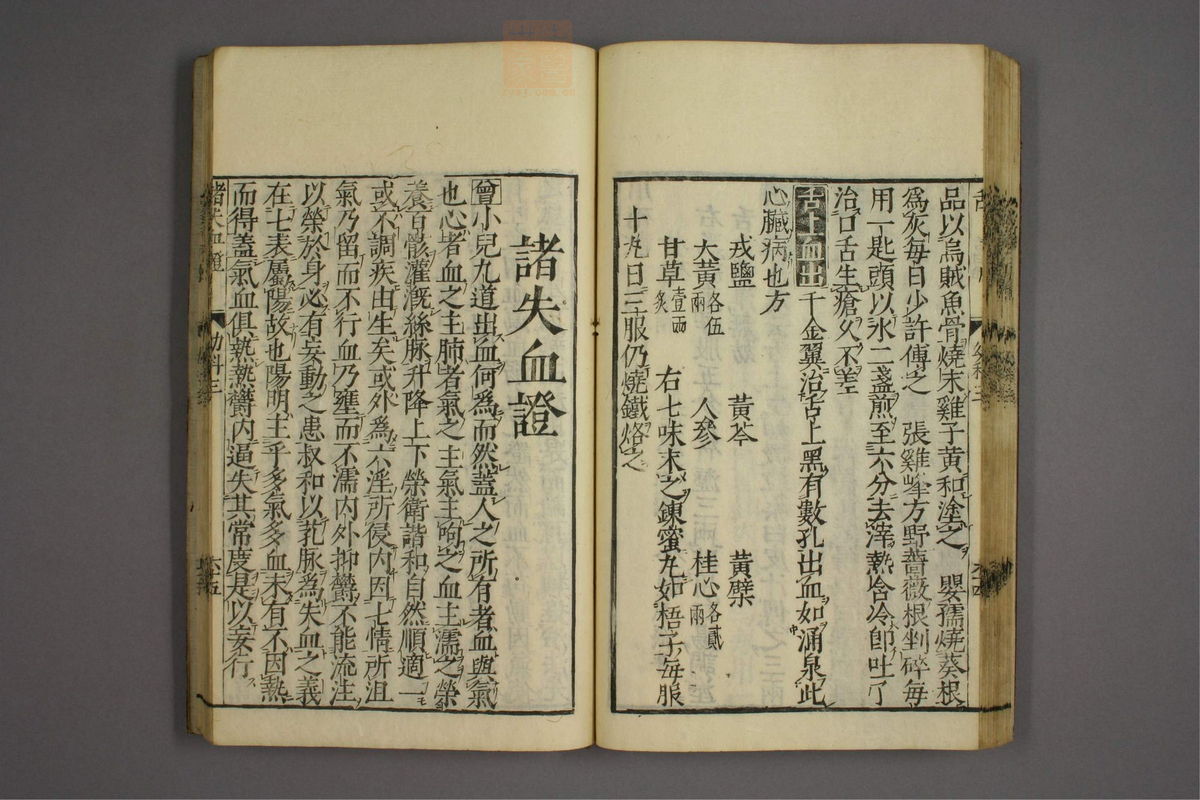 品以烏賊魚骨燒末雞子黃和塗之　嬰孺燒葵根
爲灰每日少許傅之　張雞峰方野薔薇根剉碎每
用一匙頭以水二盞煎至六分去滓熱含冷卽吐了
治口舌生瘡久不差
舌上血出　千金翼治舌上黑有數孔出血如涌泉此
心臟病也方
戎鹽　黃芩　黃檗
大黃各伍兩　人參　桂心各貳兩
甘草壹兩炙　右七味末之鍊蜜丸如梧子每服
十丸日三服仍燒鐵烙之
諸失血證
曾小兒九道出血何爲而然蓋人之所有者血與氣
也心者血之主肺者氣之主氣主呴之血主濡之榮
養百骸灌漑絲脉升降上下榮衛諧和自然順適一
或不調疾由生矣或外爲六淫所侵內因七情所沮
氣乃留而不行血乃壅而不濡內外抑欝不能流注
以榮於身必有妄動之患叔和以芤脉爲失血之義
在七表屬陽故也陽明主乎多氣多血未有不因熱
而得蓋氣血俱熱熱欝內逼失其常度是以妄行
諸失血證　幼科三　六十五